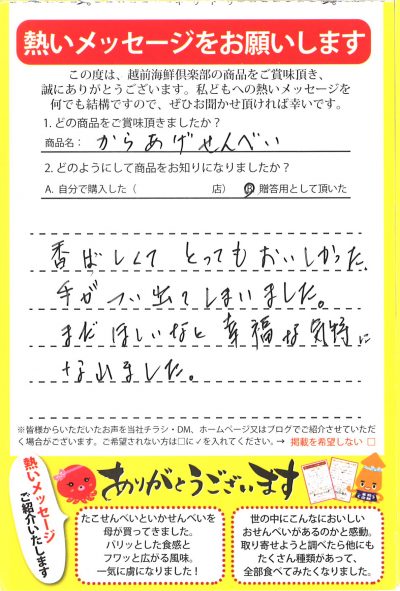 熱いメッセージをお願いします
この度は、越前海鮮倶楽部の商品をご賞味頂き、
誠にありがとうございます。私どもへの熱いメッセージを
何でも結構ですので、ぜひお聞かせ頂ければ幸いです。
1. どの商品をご賞味頂きましたか?
商品名: からあげせんべい
2. どのようにして商品をお知りになりましたか?
A. 自分で購入した( 店) B 贈答用として頂いた
香ばしくてとってもおいしかった、
手がつい出てしまいました。
まだほしいなと幸福な気持に
なりました。
※皆様からいただいたお声を当社チラシ・DM、ホームページ又はブログでご紹介させていただ
く場合がございます。ご希望されない方は□に✓を入れてください。→ 掲載を希望しない □
熱いメッセージ
ご紹介いたします
ありがとうございます
たこせんべいといかせんべいを
母が買ってきました。
パリッとした食感と
フワッと広がる風味。
一気に虜になりました!
世の中にこんなにおいしい
おせんべいがあるのかと感動。
取り寄せようと調べたら他にも
たくさん種類があって、
全部食べてみたくなりました。